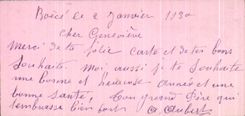 Boicé le 2 Janvier 1930
cher Geneviève
Merci de ta jolie carte et de tes bons
souhaits. Moi aussi je te souhaite
une bonne et heureuse année et une
bonne santé, ton grand père qui
t'embrasse bien fort. A Aubert